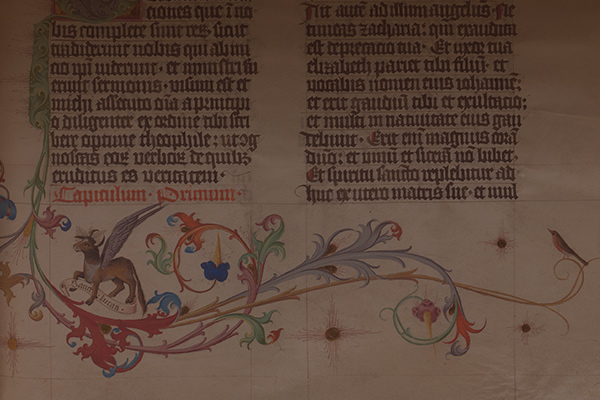 tiones que ĩ no
bis complete sunt res. sicut
tradiderunt nobis qui ab ini
cio ipĩ viderunt · et ministri fu
erunt sermonis · visum est et
michi assecuto oĩa a principi
o diligenter ex ordine tibi scri
bere optime theophile: ut cog
noscas eoꝝ verboꝝ de quibꝫ
eruditus es veritatem ·
Capitulum Primum ·
Sanct Lucas
Ait autē ad illum angelus. Ne
timeas zacharia: qm̄ exaudita
est deprecatio tua · Et uxor tua
elizabeth pariet tibi filiū · et
vocabis nomen eius iohannē:
et erit gaudiū tibi et exultatio;
et multi in nativitate eius gau
debunt · Erit em̄ magnus corā
dn̄o: et vinū et sicerā nō bibet ·
Et spiritu sancto replebitur ad
huc ex utero matris sue · et mul